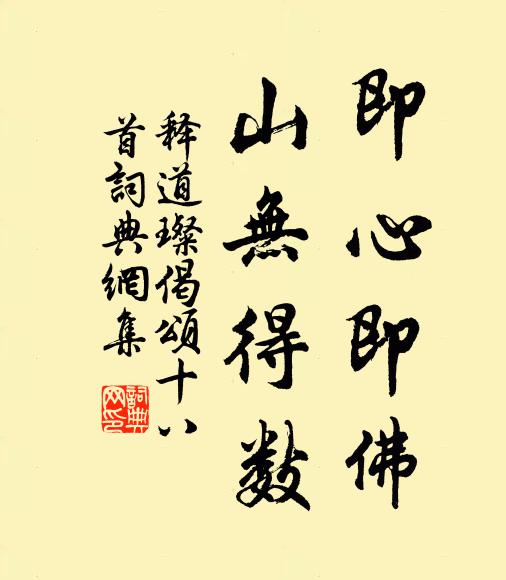 即心即佛
山無得數
释道璨偈頌十八
首詞典網集
詞典
网印